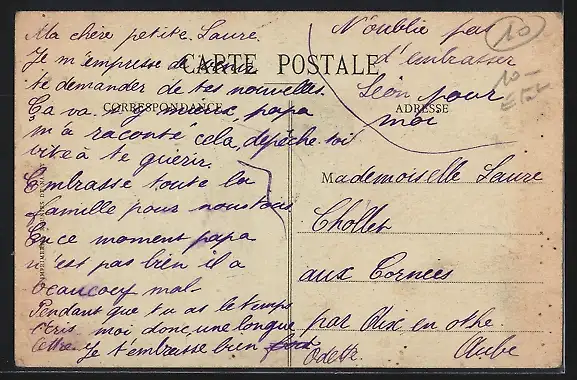 Ma chère petite Laure.
Je m'empresse de venir
te demander de tes nouvelles
Ça va mieux, papa
m'a raconté cela, dépêche-toi
vite à te guérir.
Embrasse toute la
famille pour nous tous
En ce moment papa
n'est pas bien il a
beaucoup mal.
Pendant que tu as le temps
écris moi donc une longue
lettre. Je t'embrasse bien fort
Odette
N'oublie pas
d'embrasser
Léon pour
moi
10
10-
CARTE POSTALE
CORRESPONDANCE
ADRESSE
Mademoiselle Laure
Chollet
aux Cornées
par Aix en othe.
Aube